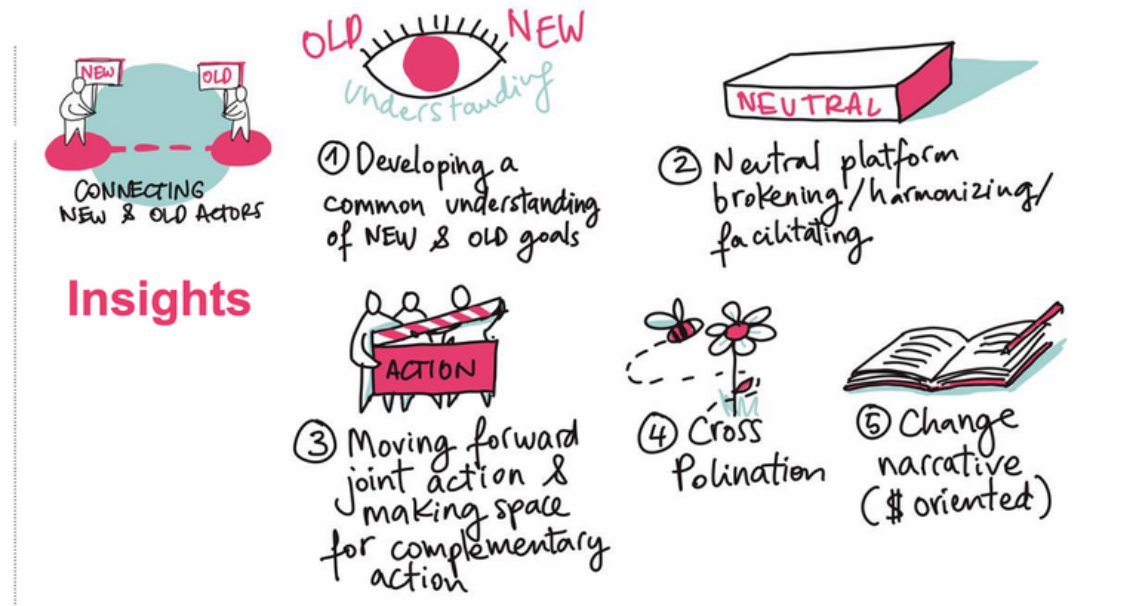 NEW
OLD
CONNECTING
NEW & OLD ACTORS
Insights
OLD
NEW
Understanding
① Developing a
common understanding
of NEW & OLD goals
NEUTRAL
② Neutral platform
brokening/harmonizing/
facilitating
ACTION
③ Moving forward
joint action &
making space
for complementary
action
④ Cross
Polination
⑤ Change
narrative
($ oriented)